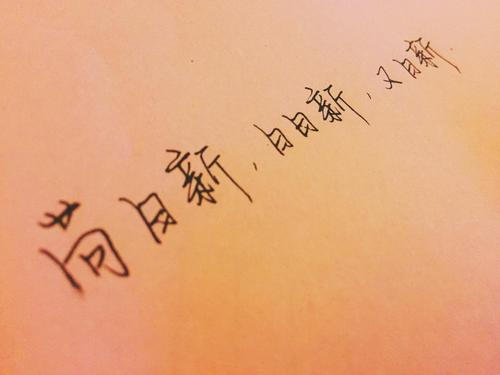 苟日新，日日新，又日新